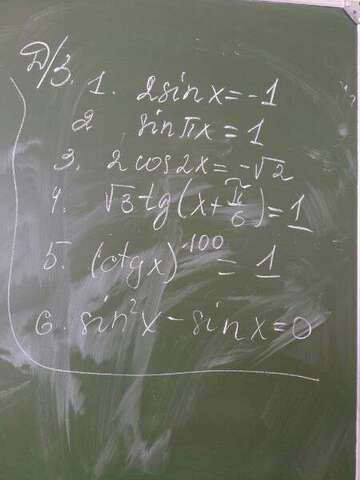 Д/З. 1. 2sinx=-1
2 sinπx=1
3. 2cos2x=-√2
4. √3tg(x+π/6)=1
5. (ctgx)^100=1
6. sin²x-sinx=0